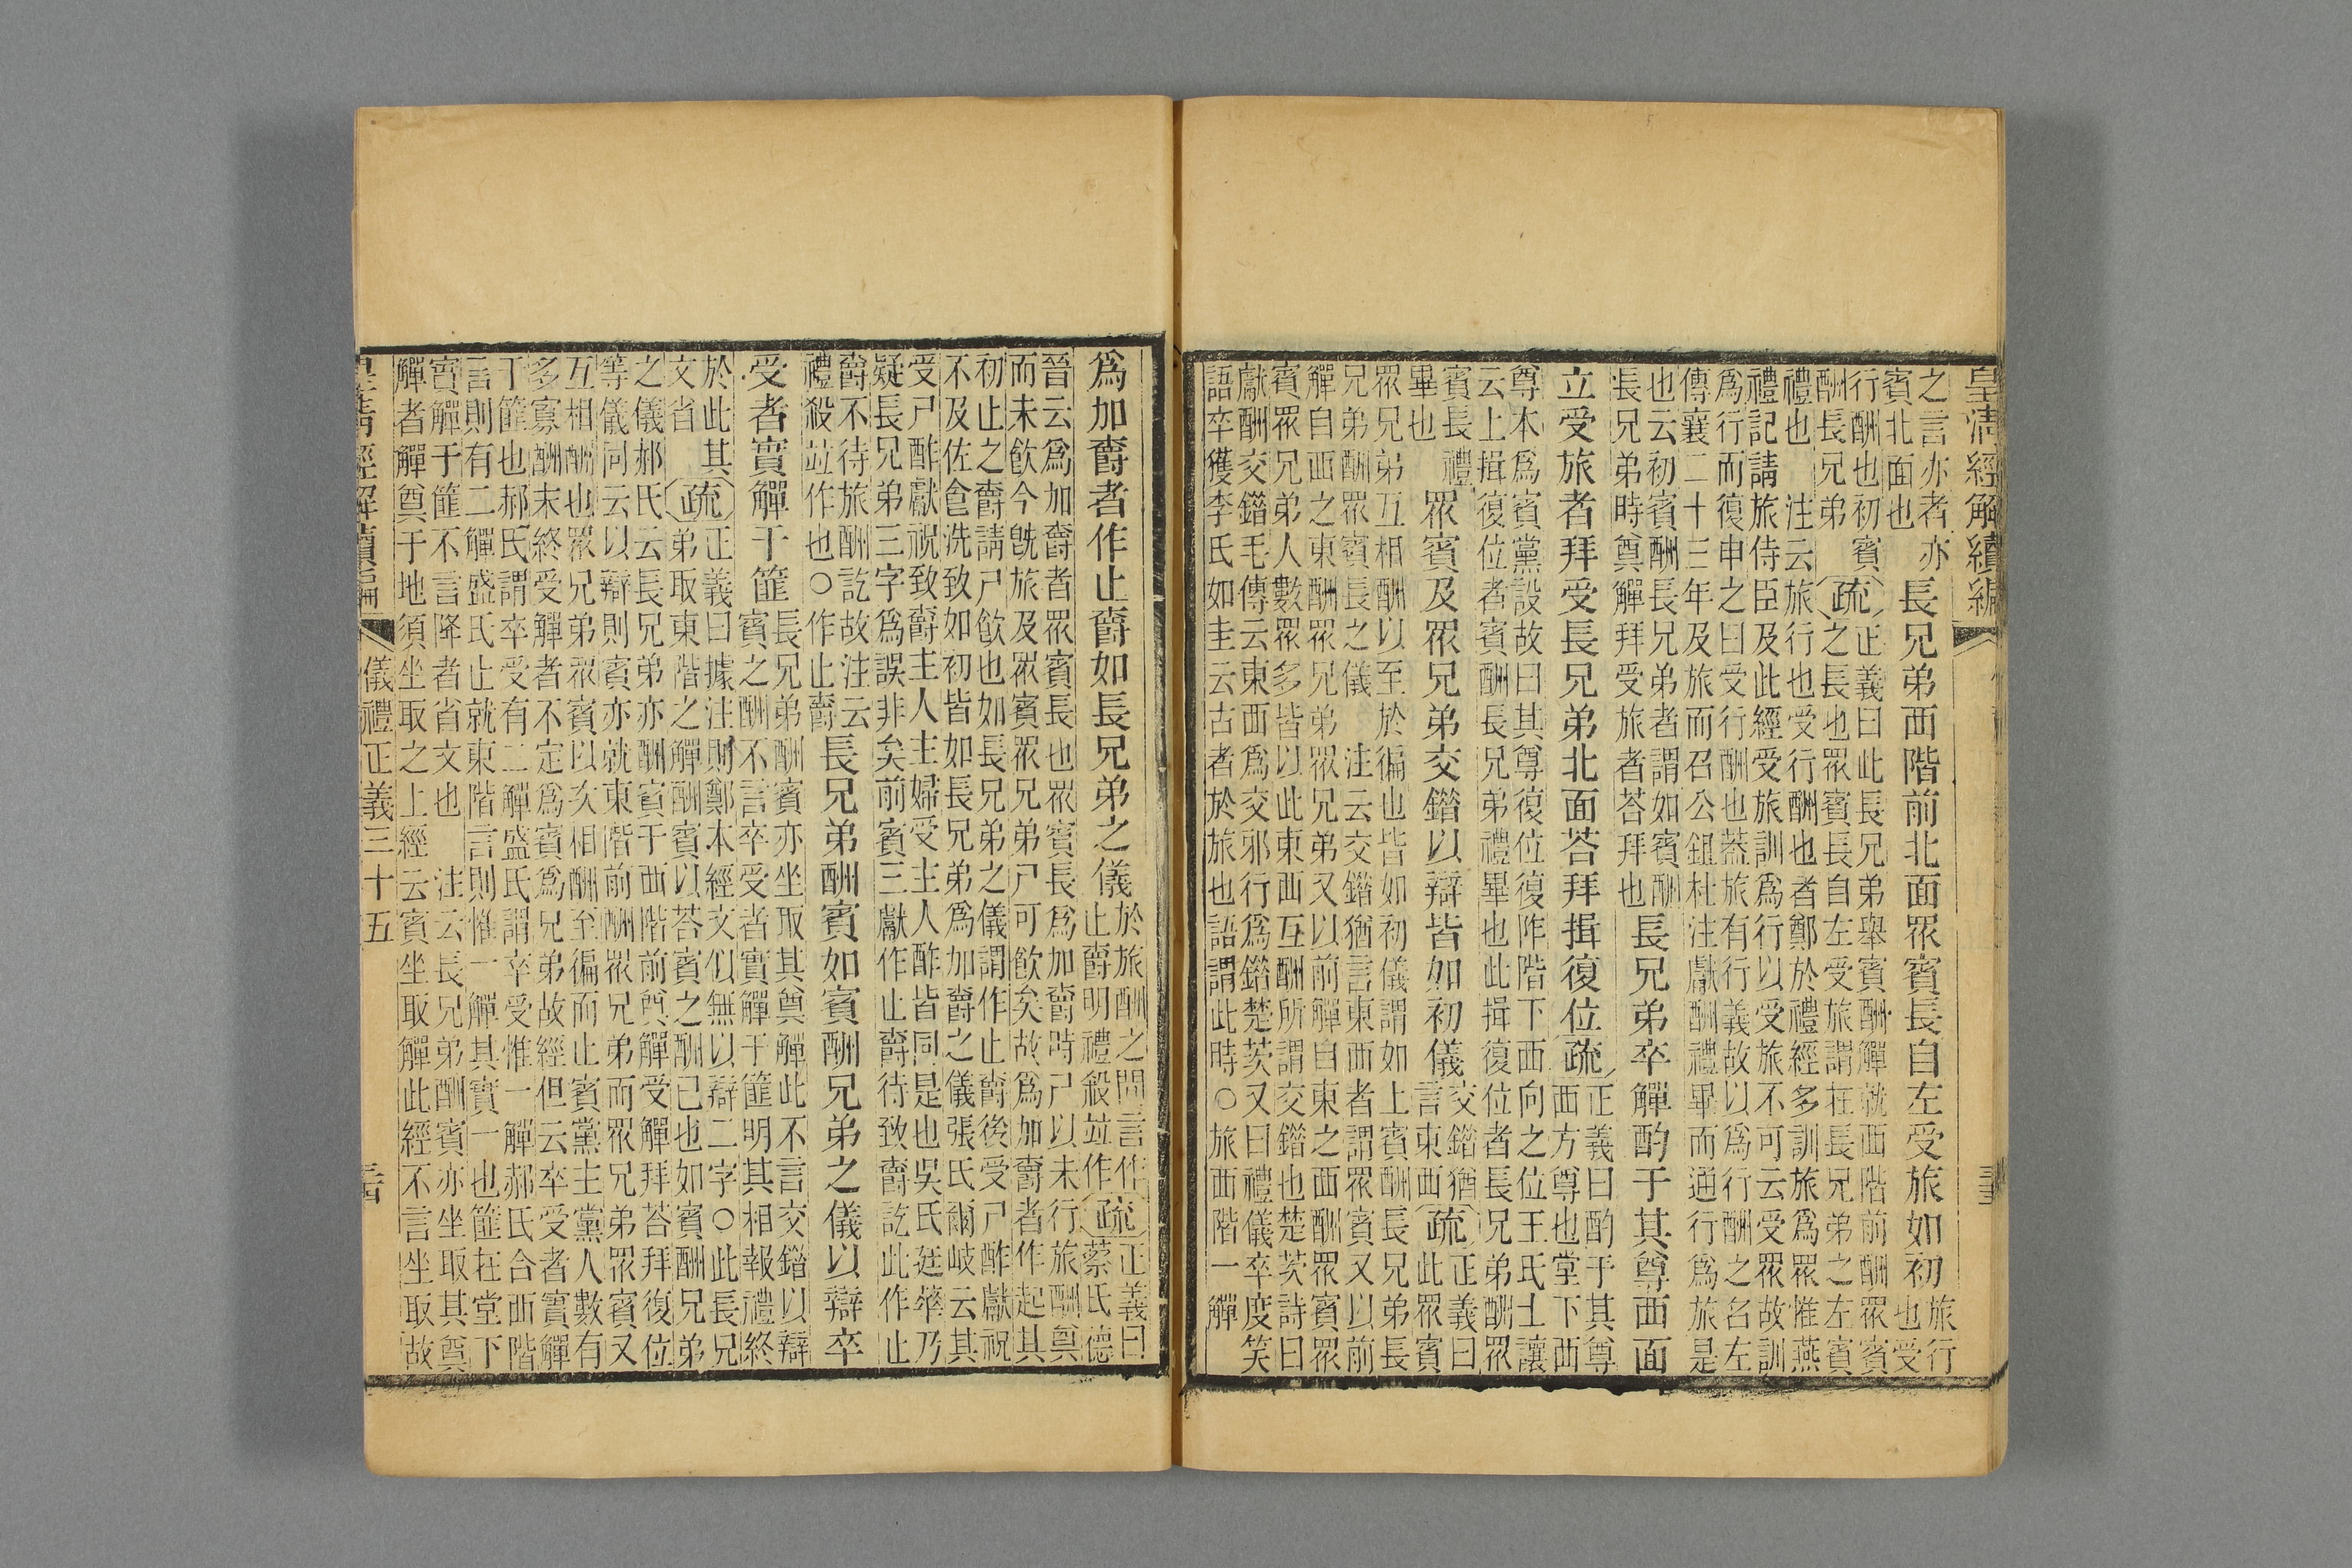 皇清經解續編
之言亦者亦
賓北面也
長兄弟西階前北面眾賓長自左受旅如初
旅行
也受
行酬也初賓
酬長兄弟
疏
正義曰此長兄弟舉賓酬觶就西階前酬眾賓
之長也眾賓長自左受旅謂在長兄弟之左賓
禮也　注云旅行也受行酬也者鄭於禮經多訓旅爲眾惟燕
禮記請旅侍臣及此經受旅訓爲行以受旅不可云受眾故訓
爲行而復申之曰受行酬也葢旅有行義故以爲行酬之名左
傳襄二十三年及旅而召公鉏杜注獻酬禮畢而通行爲旅是
也云初賓酬長兄弟者謂如賓酬
長兄弟時奠觶拜受旅者荅拜也
長兄弟卒觶酌于其尊西面
立受旅者拜受長兄弟北面荅拜揖復位
疏
正義曰酌于其尊
西方尊也堂下西
尊本爲賓黨設故曰其尊復位復阼階下西向之位王氏士讓
云上揖復位者賓酬長兄弟禮畢也此揖復位者長兄弟酬眾
賓長禮
畢也
眾賓及眾兄弟交錯以辯皆如初儀
交錯猶
言東西
疏
正義曰
此眾賓
眾兄弟互相酬以至於徧也皆如初儀謂如上賓酬長兄弟長
兄弟酬眾賓長之儀　注云交錯猶言東西者謂眾賓又以前
觶自西之東酬眾兄弟眾兄弟又以前觶自東之西酬眾賓眾
賓眾兄弟人數眾多皆以此東西互酬所謂交錯也楚茨詩曰
獻酬交錯毛傳云東西爲交邪行爲錯楚茨又曰禮儀卒度笑
語卒獲李氏如圭云古者於旅也語謂此時○旅西階一觶
爲加爵者作止爵如長兄弟之儀
於旅酬之間言作
止爵明禮殺竝作
疏
正義曰
蔡氏德
晉云爲加爵者眾賓長也眾賓長爲加爵時尸以未行旅酬奠
而未飮今旣旅及眾賓眾兄弟尸可飮矣故爲加爵者作起其
初止之爵請尸飮也如長兄弟之儀謂作止爵後受尸酢獻祝
不及佐食洗致如初皆如長兄弟爲加爵之儀張氏爾岐云其
受尸酢獻祝致爵主人主婦受主人酢皆同是也吳氏廷華乃
疑長兄弟三字爲誤非矣前賓三獻作止爵待致爵訖此作止
爵不待旅酬訖故注云
禮殺竝作也○作止爵
長兄弟酬賓如賓酬兄弟之儀以辯卒
受者實觶于篚
長兄弟酬賓亦坐取其奠觶此不言交錯以辯
賓之酬不言卒受者實觶于篚明其相報禮終
於此其
文省
疏
正義曰據注則鄭本經文似無以辯二字○此長兄
弟取東階之觶酬賓以荅賓之酬已也如賓酬兄弟
之儀郝氏云長兄弟亦酬賓于西階前奠觶受觶拜荅拜復位
等儀同云以辯則賓亦就東階前酬眾兄弟而眾兄弟眾賓又
互相酬也眾兄弟眾賓以次相酬至徧而止賓黨主黨人數有
多寡酬末終受觶者不定爲賓爲兄弟故經但云卒受者實觶
于篚也郝氏謂卒受有二觶盛氏謂卒受惟一觶郝氏合西階
言則有二觶盛氏止就東階言則惟一觶其實一也篚在堂下
實觶于篚不言降者省文也　注云長兄弟酬賓亦坐取其奠
觶者觶奠于地須坐取之上經云賓坐取觶此經不言坐取故
皇清經解續編　儀禮正義三十五